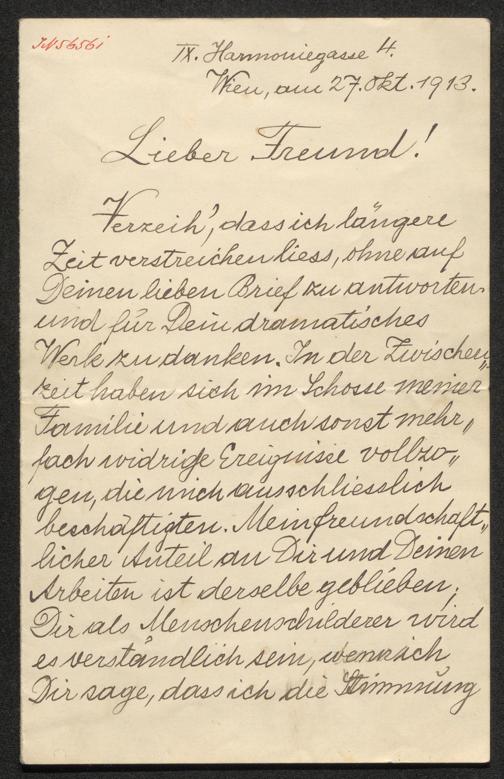 IN 56561
IX. Harmoniegasse 4.
Wien, am 27. Okt. 1913.
Lieber Freund!
Verzeih', dass ich längere
Zeit verstreichen liess, ohne auf
Deinen lieben Brief zu antworten
und für Dein dramatisches
Werk zu danken. In der Zwischen„
zeit haben sich im Schosse meiner
Familie und auch sonst mehr„
fach widrige Ereignisse vollzo„
gen, die mich ausschliesslich
beschäftigten. Mein freundschaft„
licher Anteil an Dir und Deinen
Arbeiten ist derselbe geblieben;
Dir als Menschenschilderer wird
es verständlich sein, wenn ich
Dir sage, dass ich die Stimmung